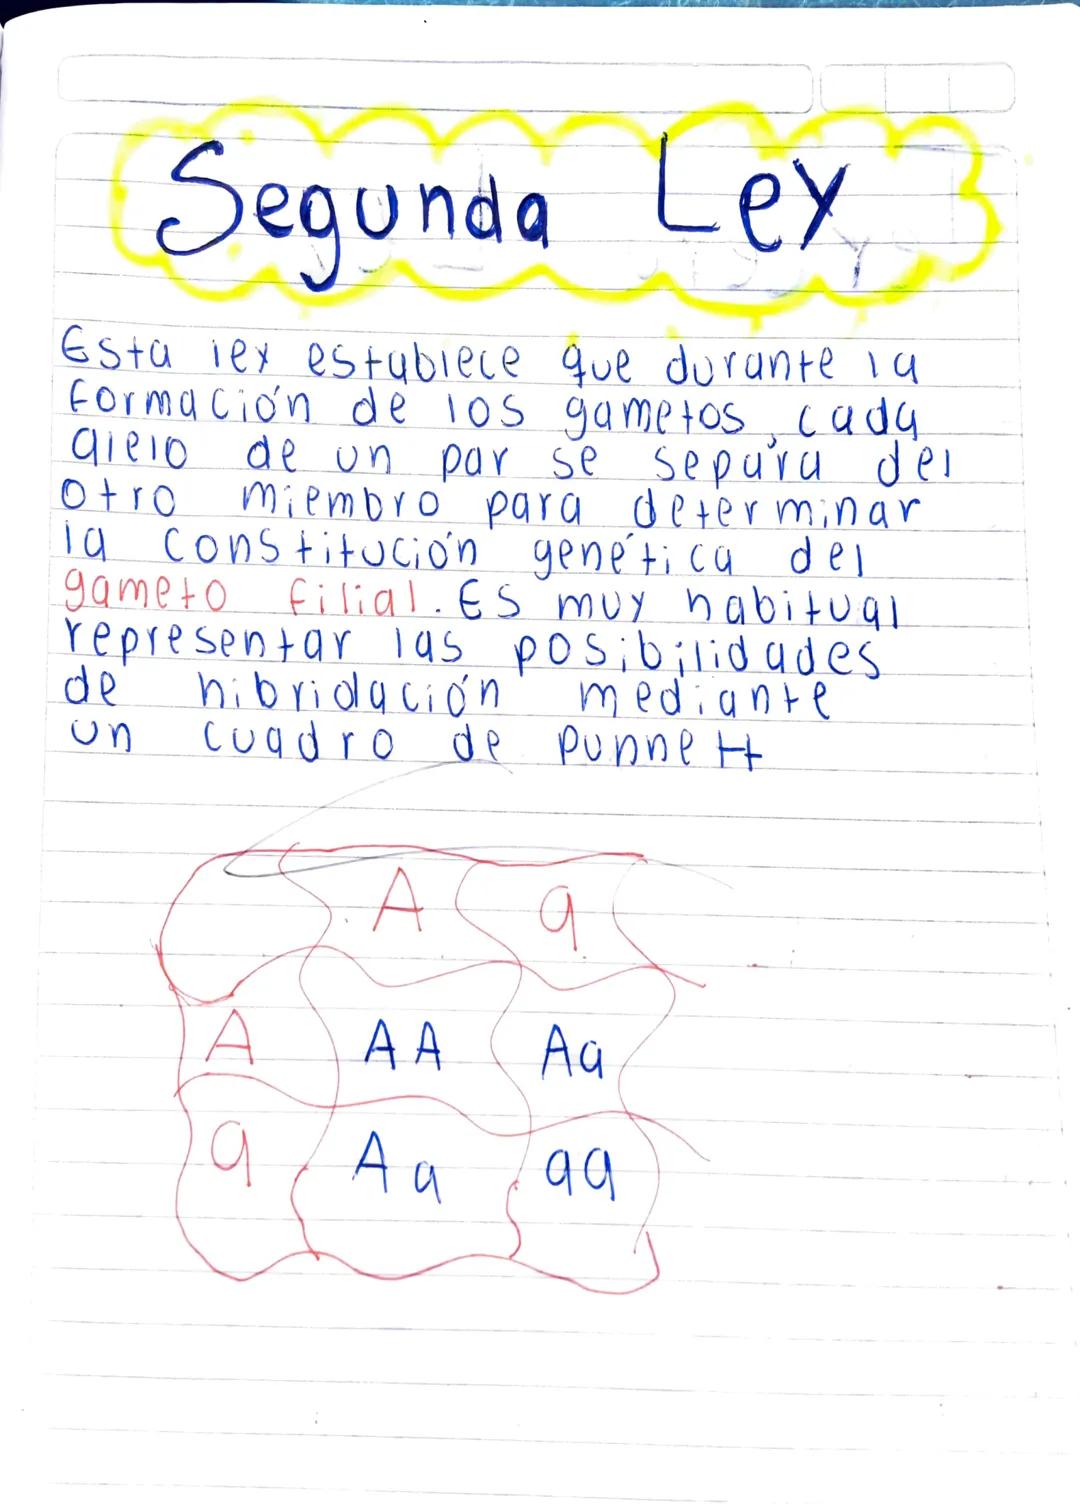 Segunda Ley
Esta ley establece que durante la
formación de los gametos, cada
alelo de un par se separa del
otro miembro para determinar
la constitución genética del
gameto filial. Es muy habitual
representar las posibilidades
de hibridación mediante
un cuadro de punnett
A a
A AA Aa
a Aa aa